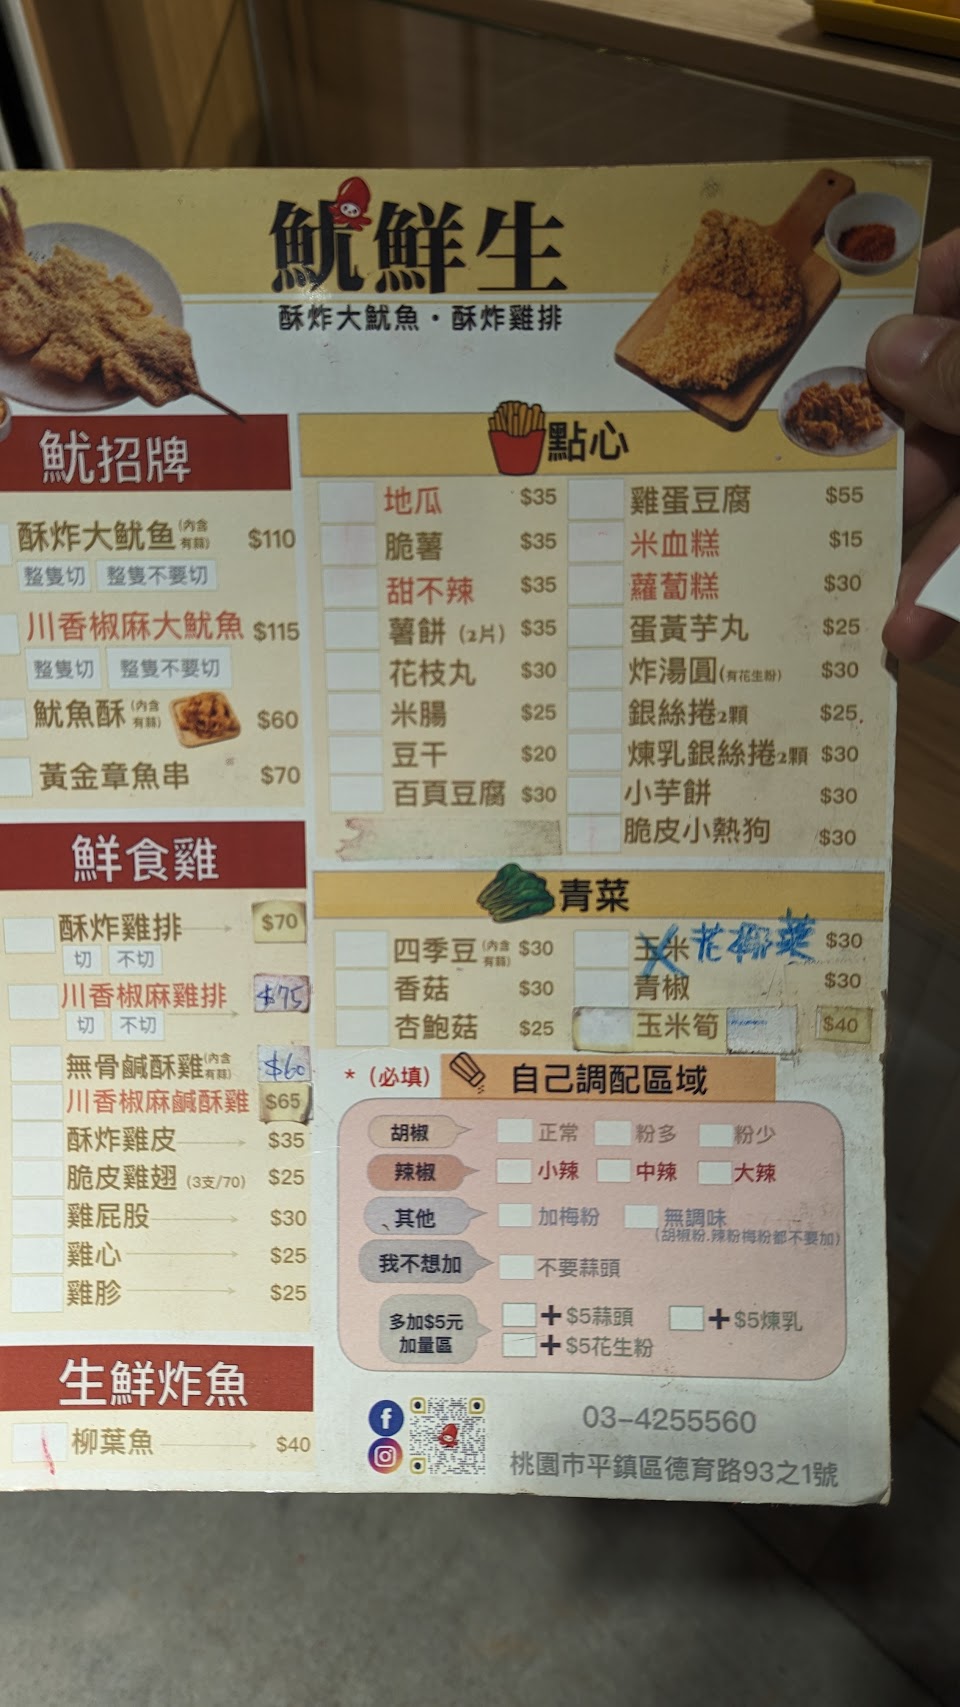 魷鮮生
酥炸大魷魚・酥炸雞排
魷招牌
酥炸大魷魚(內含有蒜) $110
整隻切 整隻不要切
川香椒麻大魷魚 $115
整隻切 整隻不要切
魷魚酥(內含有蒜) $60
黃金章魚串 $70
鮮食雞
酥炸雞排 $70
切 不切
川香椒麻雞排 $75
切 不切
無骨鹹酥雞(內含有蒜) $60
川香椒麻鹹酥雞 $65
酥炸雞皮 $35
脆皮雞翅 (3支/70) $25
雞屁股 $30
雞心 $25
雞胗 $25
生鮮炸魚
柳葉魚 $40
點心
地瓜 $35
脆薯 $35
甜不辣 $35
薯餅 (2片) $35
花枝丸 $30
米腸 $25
豆干 $20
百頁豆腐 $30
雞蛋豆腐 $55
米血糕 $15
蘿蔔糕 $30
蛋黃芋丸 $25
炸湯圓(有花生粉) $30
銀絲捲2顆 $25
煉乳銀絲捲2顆 $30
小芋餅 $30
脆皮小熱狗 $30
青菜
四季豆(內含有蒜) $30
香菇 $30
杏鮑菇 $25
玉米 花椰菜 $30
青椒 $30
玉米筍 $40
*(必填) 自己調配區域
胡椒 正常 粉多 粉少
辣椒 小辣 中辣 大辣
其他 加梅粉 無調味
(胡椒粉.辣粉梅粉都不要加)
我不想加 不要蒜頭
多加$5元加量區 +$5蒜頭 +$5煉乳
+$5花生粉
03-4255560
桃園市平鎮區德育路93之1號